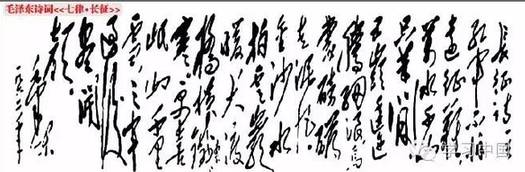 毛泽东诗词<<七律·长征>>
长征诗一首
红军不怕
远征难
万水千山
只等闲
五岭逶迤
腾细浪乌
蒙磅礴
走泥丸
金沙水
拍云崖
暖大渡
桥横铁索
寒更喜
岷山千里
雪三军
过后
尽开
颜
毛泽东
学习中国